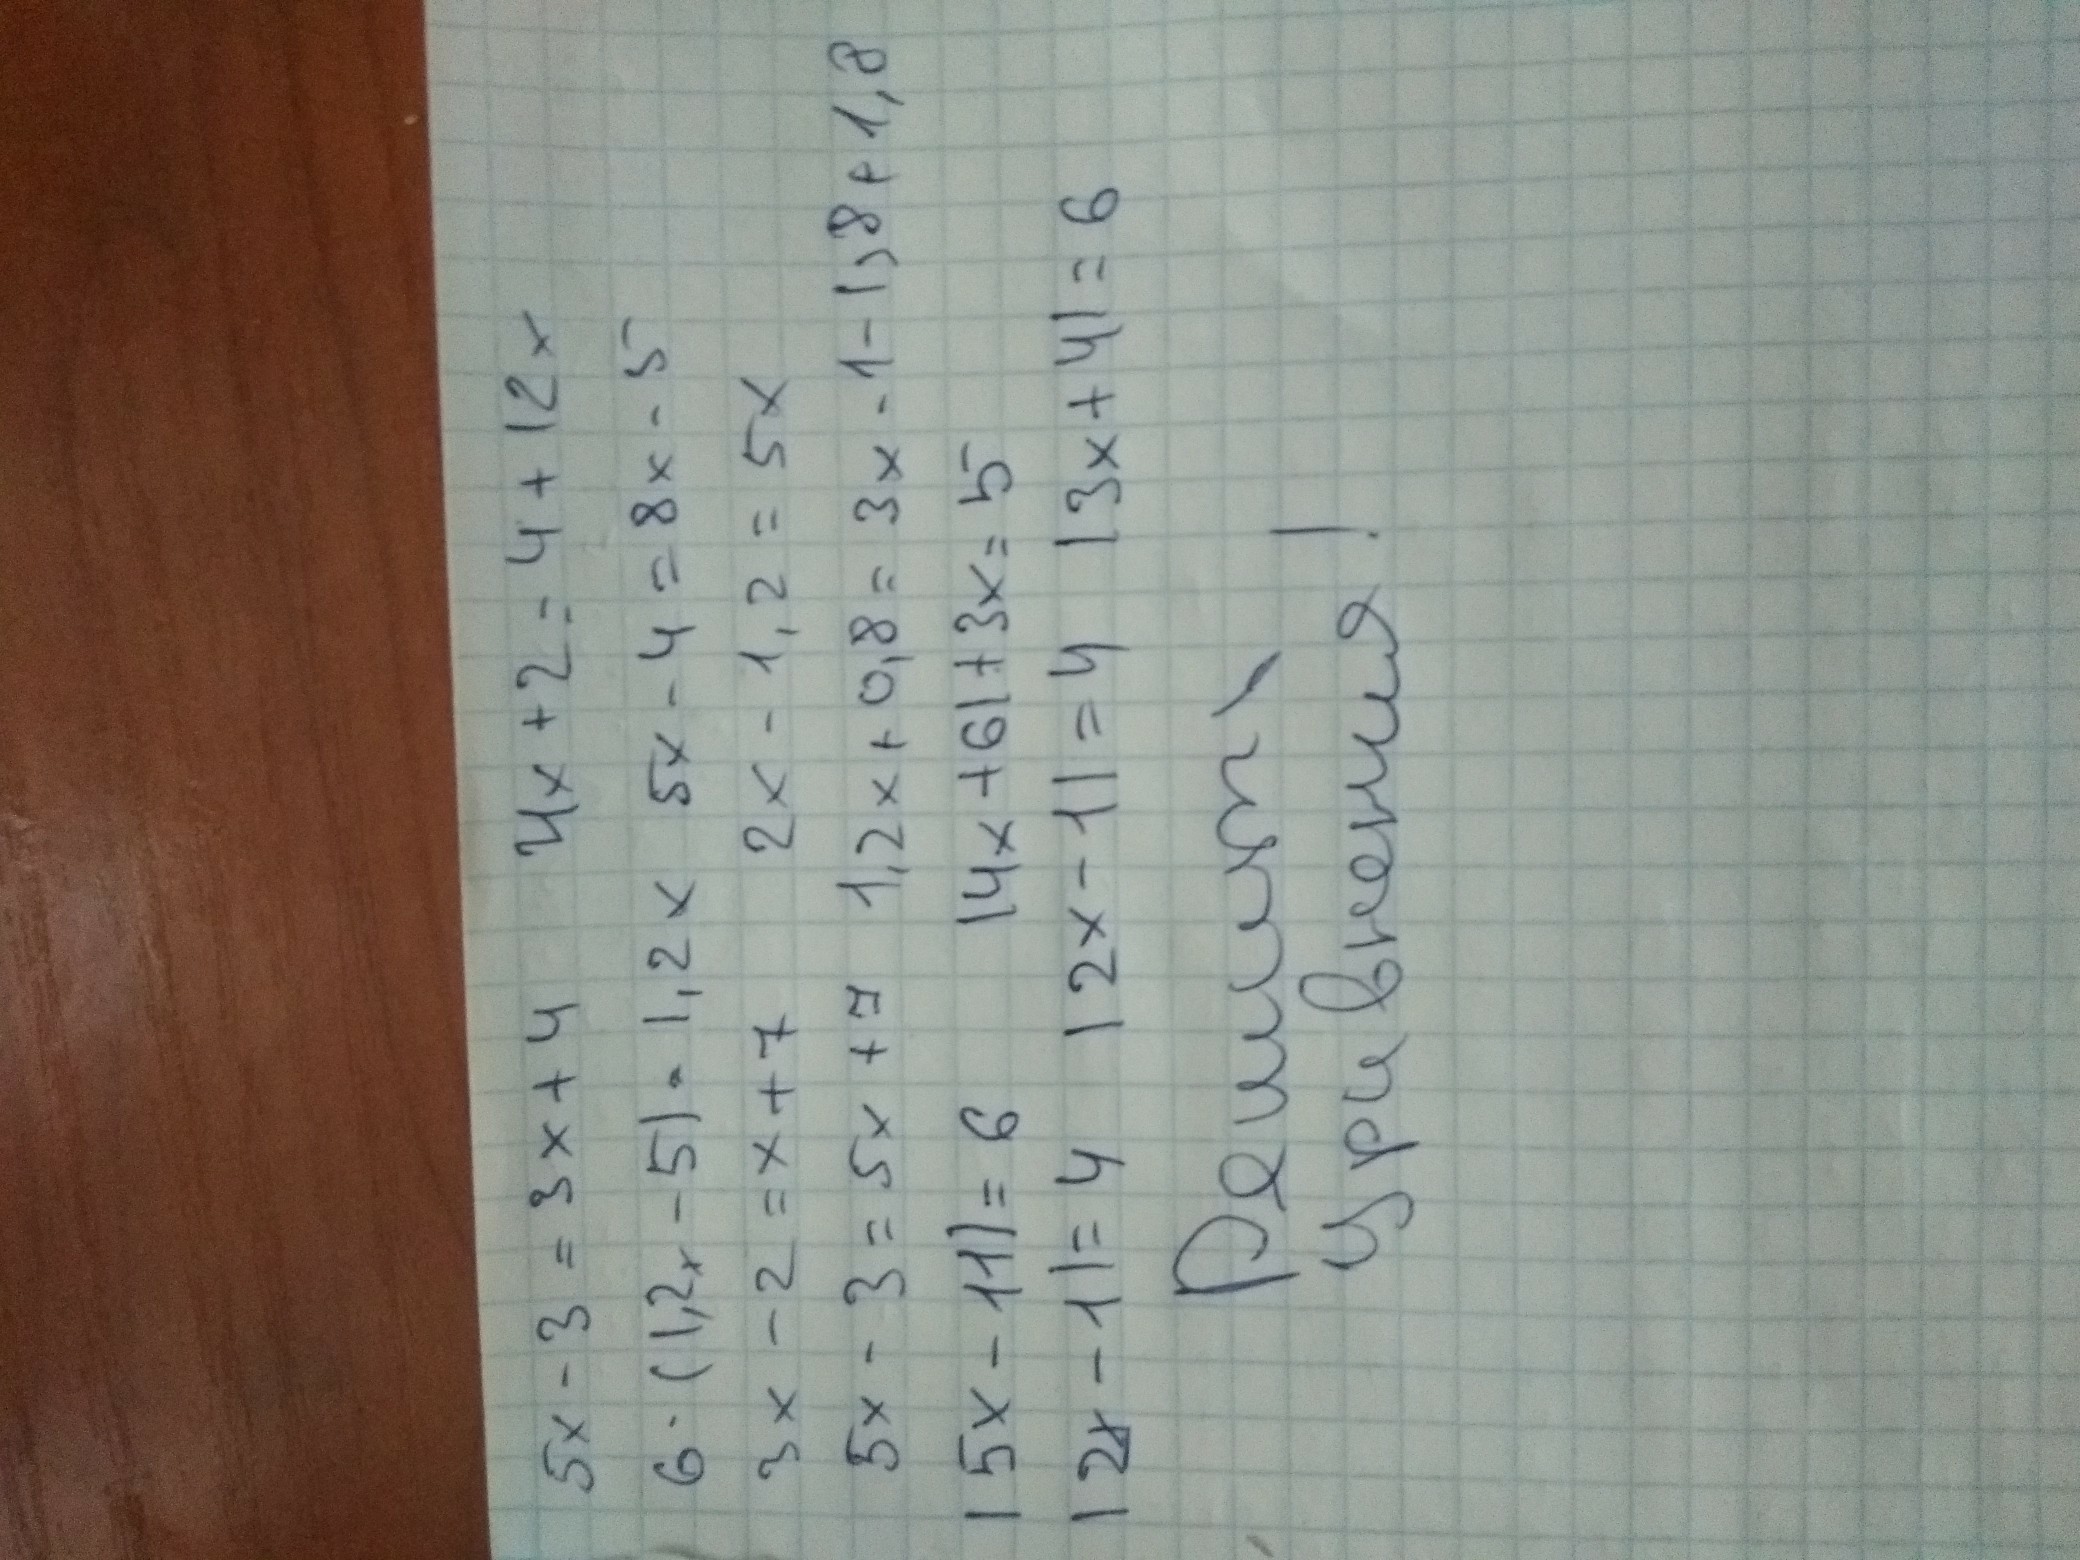 5x - 3 = 3x + 4 4x + 2 = 4 + 12x
6 · (1,2x - 5) · 1,2x 5x - 4 = 8x - 5
3x - 2 = x + 7 2x - 1,2 = 5x
5x - 3 = 5x + 7 1,2x + 0,8 = 3x - 1 - 1,8 + 1,8
|5x - 11| = 6 |4x + 6| + 3x = 5
|2x - 1| = 4 |2x - 1| = 4 |3x + 4| = 6
Решить
уравнения!